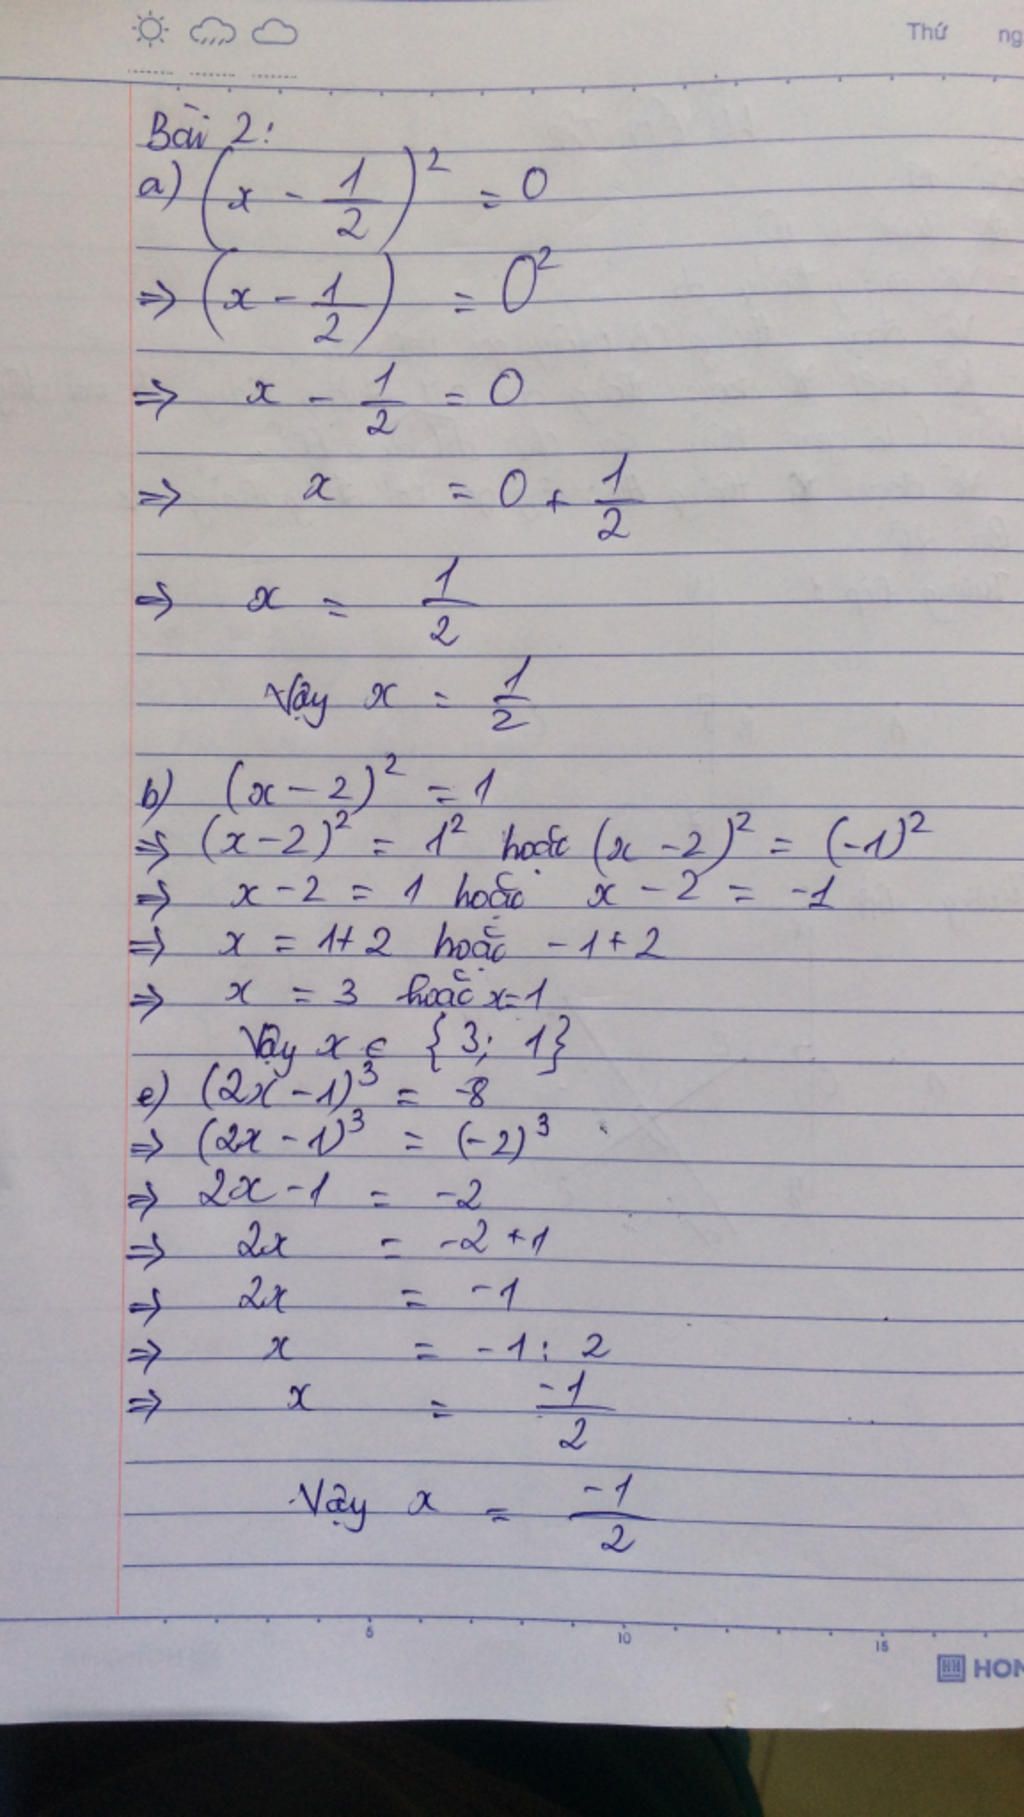 Thứ ng
Bài 2:
a) (x - 1/2)² = 0
=> (x - 1/2) = 0²
=> x - 1/2 = 0
=> x = 0 + 1/2
=> x = 1/2
Vậy x = 1/2
b) (x - 2)² = 1
=> (x - 2)² = 1² hoặc (x - 2)² = (-1)²
=> x - 2 = 1 hoặc x - 2 = -1
=> x = 1 + 2 hoặc - 1 + 2
=> x = 3 hoặc x = 1
Vậy x ∈ {3; 1}
c) (2x - 1)³ = -8
=> (2x - 1)³ = (-2)³
=> 2x - 1 = -2
=> 2x = -2 + 1
=> 2x = -1
=> x = -1 : 2
=> x = -1/2
Vậy x = -1/2
5 10 15
HON